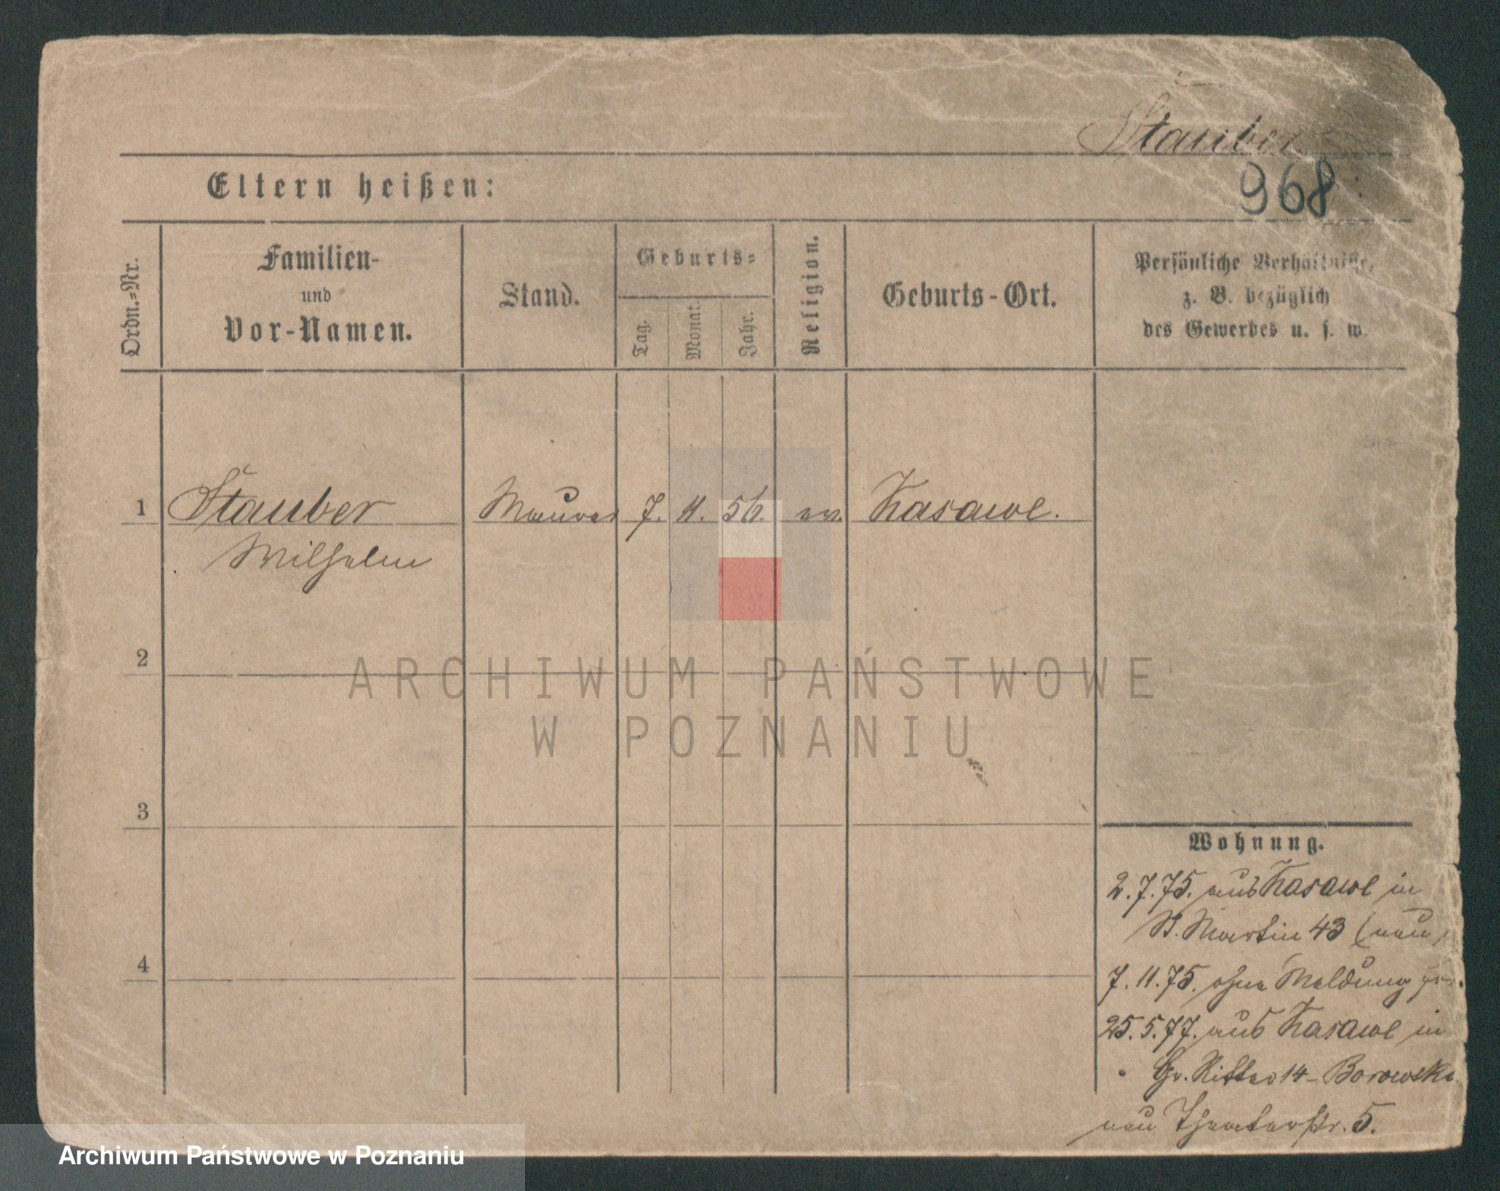 Stauber
968
Eltern heißen:
Ordn.=Nr.
Familien-
und
Vor-Namen.
Stand.
Geburts=
Tag.
Monat.
Jahr.
Religion.
Geburts-Ort.
Persönliche Verhältnisse,
z. B. bezüglich
des Gewerbes u. s. w.
1 Stauber Maurer 7. 11. 56. ev. Kasawe.
Wilhelm
2
ARCHIWUM PAŃSTWOWE
W POZNANIU
3
Wohnung.
2.7.75. aus Kasawe in
St. Martin 43 (neu)
4
7.11.75. ohne Meldung
25.5.77. aus Kasawe in
Gr. Ritter 14 - Borowski
neu Theaterstr. 5.
Archiwum Państwowe w Poznaniu